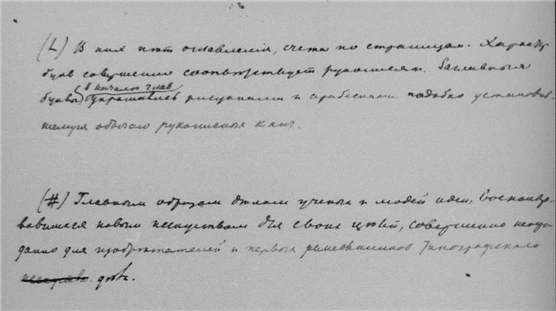 (L) В них нет оглавления, счета по страницам. Характер
букв совершенно соответствует рукописям. Заглавныя
буквы (в начале глав) украшались рисунками и арабесками подобно установив-
шемуся обычаю рукописных книг.
(#) Главным образом были ученые и людей идеи,
новым искусством для своих целей, совершенно неожи-
данно для изобретателей и первых ремесленников типографского
дела.